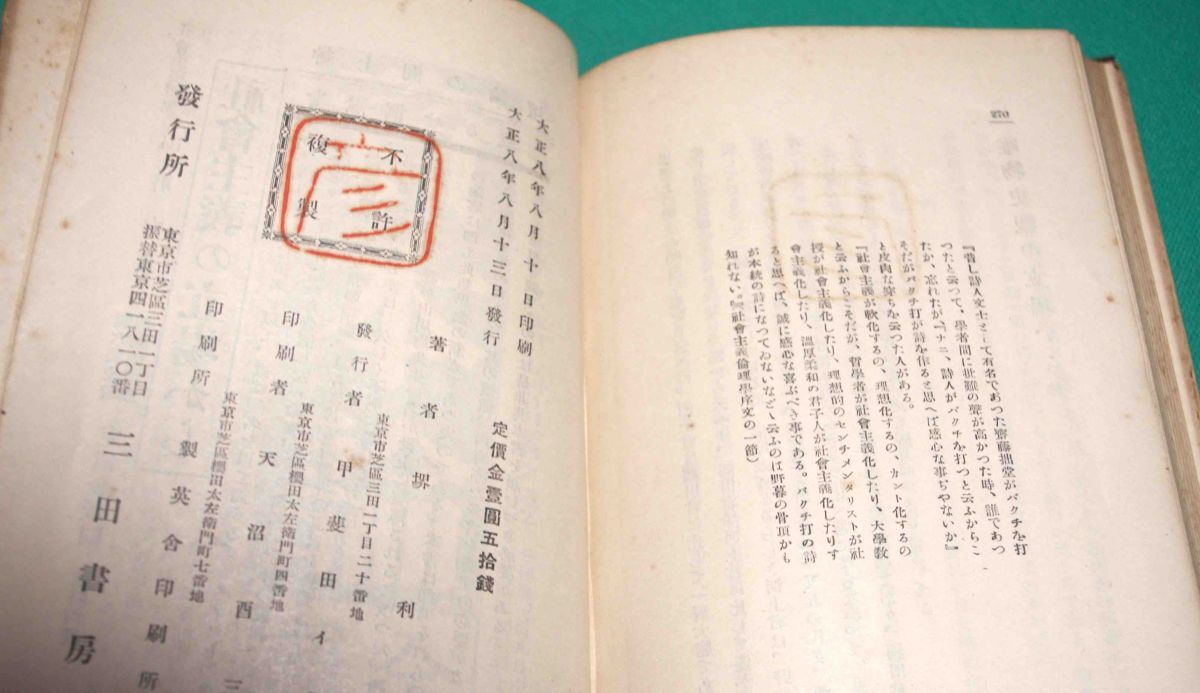 270
『昔し詩人文士として有名であつた齋藤拙堂がバクチを打
つたと云つて、學者間に批難の聲が高かつた時、誰であつ
たか、忘れたが『ナニ、詩人がバクチを打つと云ふからこ
そだがバクチ打が詩を作ると思へば感心な事ぢやないか』
と皮肉な穿ちを云つた人がある。
『社會主義が軟化するの、理想化するの、カント化するの
と云ふからこそだが、哲學者が社會主義化したり、大學敎
授が社會主義化したり、理想的のセンチメンタリストが社
會主義化したり、溫厚柔和の君子人が社會主義化したりす
ると思へば、誠に感心な喜ぶべき事である。バクチ打の詩
が本統の詩になつてゐないなどゝ云ふのは野暮の骨頂かも
知れない。』（社會主義倫理學序文の一節）
大正八年八月十日印刷
大正八年八月十三日發行
不許
複製
定價金壹圓五拾錢
著者 堺 利
東京市芝區三田一丁目二十番地
發行者 甲斐田イ
東京市芝區櫻田太左衞門町四番地
印刷者 天沼酉三
東京市芝區櫻田太左衞門町七番地
印刷所 製英舍印刷所
發行所
東京市芝區三田一丁目
振替東京四一八一〇番
三田書房